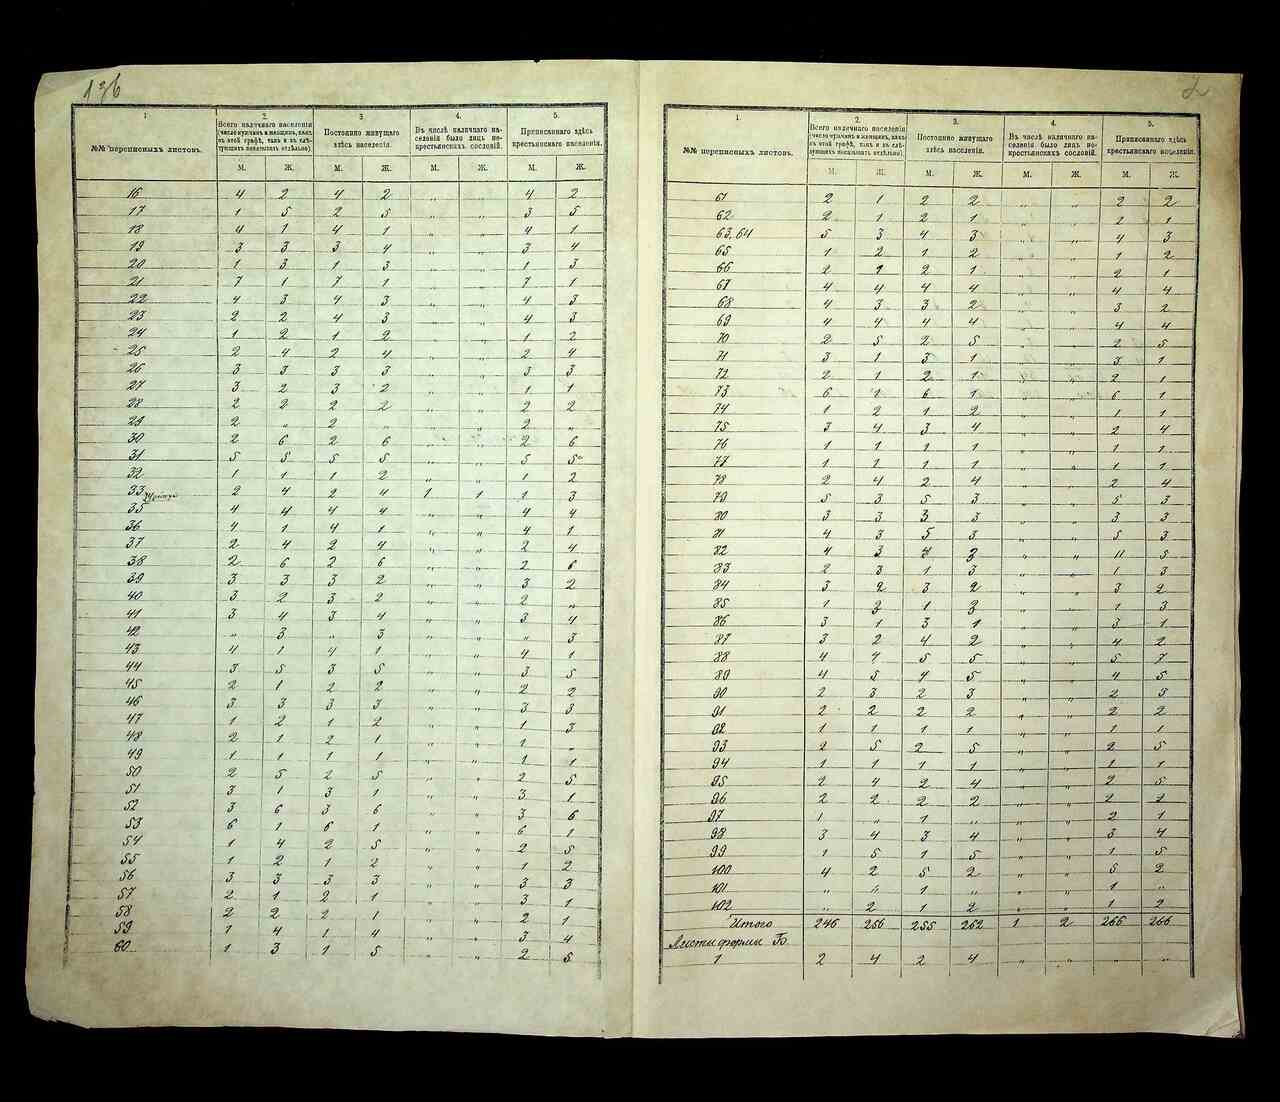 136
1.
2.
3.
4.
5.
№№ переписныхъ листовъ.
Всего наличнаго населенія
(число мужчин и женщинъ, какъ
въ этой графѣ, такъ и въ слѣ-
дующихъ показывать отдѣльно).
Постоянно живущаго
здѣсь населенія.
Въ числѣ наличнаго на-
селенія было лицъ не-
крестьянскихъ сословій.
Приписаннаго здѣсь
крестьянскаго населенія.
М. Ж. М. Ж. М. Ж. М. Ж.
16 4 2 4 2 „ „ 4 2
17 1 5 2 5 „ „ 3 5
18 4 1 4 1 „ „ 4 1
19 3 3 3 4 „ „ 3 4
20 1 3 1 3 „ „ 1 3
21 7 1 7 1 „ „ 7 1
22 4 3 4 3 „ „ 4 3
23 2 2 4 3 „ „ 4 3
24 1 2 1 2 „ „ 1 2
25 2 4 2 4 „ „ 2 4
26 3 3 3 3 „ „ 3 3
27 3 2 3 2 „ „ 1 1
28 2 2 2 2 „ „ 2 2
29 2 „ 2 „ „ „ 2 „
30 2 6 2 6 „ „ 2 6
31 5 5 5 5 „ „ 5 5
32 1 1 1 2 „ „ 1 2
33 2 4 2 4 1 1 1 3
35 4 4 4 4 „ „ 4 4
36 4 1 4 1 „ „ 4 1
37 2 4 2 4 „ „ 2 4
38 2 6 2 6 „ „ 2 6
39 3 3 3 2 „ „ 3 2
40 3 2 3 2 „ „ 2 „
41 3 4 3 4 „ „ 3 4
42 „ 3 „ 3 „ „ „ 3
43 4 1 4 1 „ „ 4 1
44 3 5 3 5 „ „ 3 5
45 2 1 2 2 „ „ 2 2
46 3 3 3 3 „ „ 3 3
47 1 2 1 2 „ „ 1 3
48 2 1 2 1 „ „ 2 „
49 1 1 1 1 „ „ 1 1
50 2 5 2 5 „ „ 2 5
51 3 1 3 1 „ „ 3 1
52 3 6 3 6 „ „ 3 6
53 6 1 6 1 „ „ 6 1
54 1 4 2 5 „ „ 2 5
55 1 2 1 2 „ „ 1 2
56 3 3 3 3 „ „ 3 3
57 2 1 2 1 „ „ 3 1
58 2 2 2 1 „ „ 2 1
59 1 4 1 4 „ „ 3 4
60 1 3 1 5 „ „ 2 5
1.
2.
3.
4.
5.
№№ переписныхъ листовъ.
Всего наличнаго населенія
(число мужчин и женщинъ, какъ
въ этой графѣ, такъ и въ слѣ-
дующихъ показывать отдѣльно).
Постоянно живущаго
здѣсь населенія.
Въ числѣ наличнаго на-
селенія было лицъ не-
крестьянскихъ сословій.
Приписаннаго здѣсь
крестьянскаго населенія.
М. Ж. М. Ж. М. Ж. М. Ж.
61 2 1 2 2 „ „ 2 2
62 2 1 2 1 „ „ 2 1
63,64 5 3 4 3 „ „ 4 3
65 1 2 1 2 „ „ 1 2
66 2 1 2 1 „ „ 2 1
67 4 4 4 4 „ „ 4 4
68 4 3 3 2 „ „ 3 2
69 4 4 4 4 „ „ 4 4
70 2 5 2 5 „ „ 2 5
71 3 1 3 1 „ „ 3 1
72 2 1 2 1 „ „ 2 1
73 6 1 6 1 „ „ 6 1
74 1 2 1 2 „ „ 1 1
75 3 4 3 4 „ „ 2 4
76 1 1 1 1 „ „ 1 1
77 1 1 1 1 „ „ 1 1
78 2 4 2 4 „ „ 2 4
79 5 3 5 3 „ „ 5 3
80 3 3 3 3 „ „ 3 3
81 4 3 5 3 „ „ 5 3
82 4 3 4 3 „ „ 11 5
83 2 3 1 3 „ „ 1 3
84 3 2 3 2 „ „ 3 2
85 1 3 1 3 „ „ 1 3
86 3 1 3 1 „ „ 3 1
87 3 2 4 2 „ „ 4 2
88 4 4 5 5 „ „ 5 7
89 4 5 4 5 „ „ 4 5
90 2 3 2 3 „ „ 2 3
91 2 2 2 2 „ „ 2 2
92 1 1 1 1 „ „ 1 1
93 2 5 2 5 „ „ 2 5
94 1 1 1 1 „ „ 1 1
95 2 4 2 4 „ „ 2 5
96 2 2 2 2 „ „ 2 2
97 1 „ 1 „ „ „ 2 1
98 3 4 3 4 „ „ 3 4
99 1 5 1 5 „ „ 1 5
100 4 2 5 2 „ „ 5 2
101 „ „ 1 „ „ „ 1 „
102 „ 2 1 2 „ „ 1 2
Итого 246 256 255 262 1 2 266 266
Листы формы Б.
1 2 4 2 4 „ „ „ „